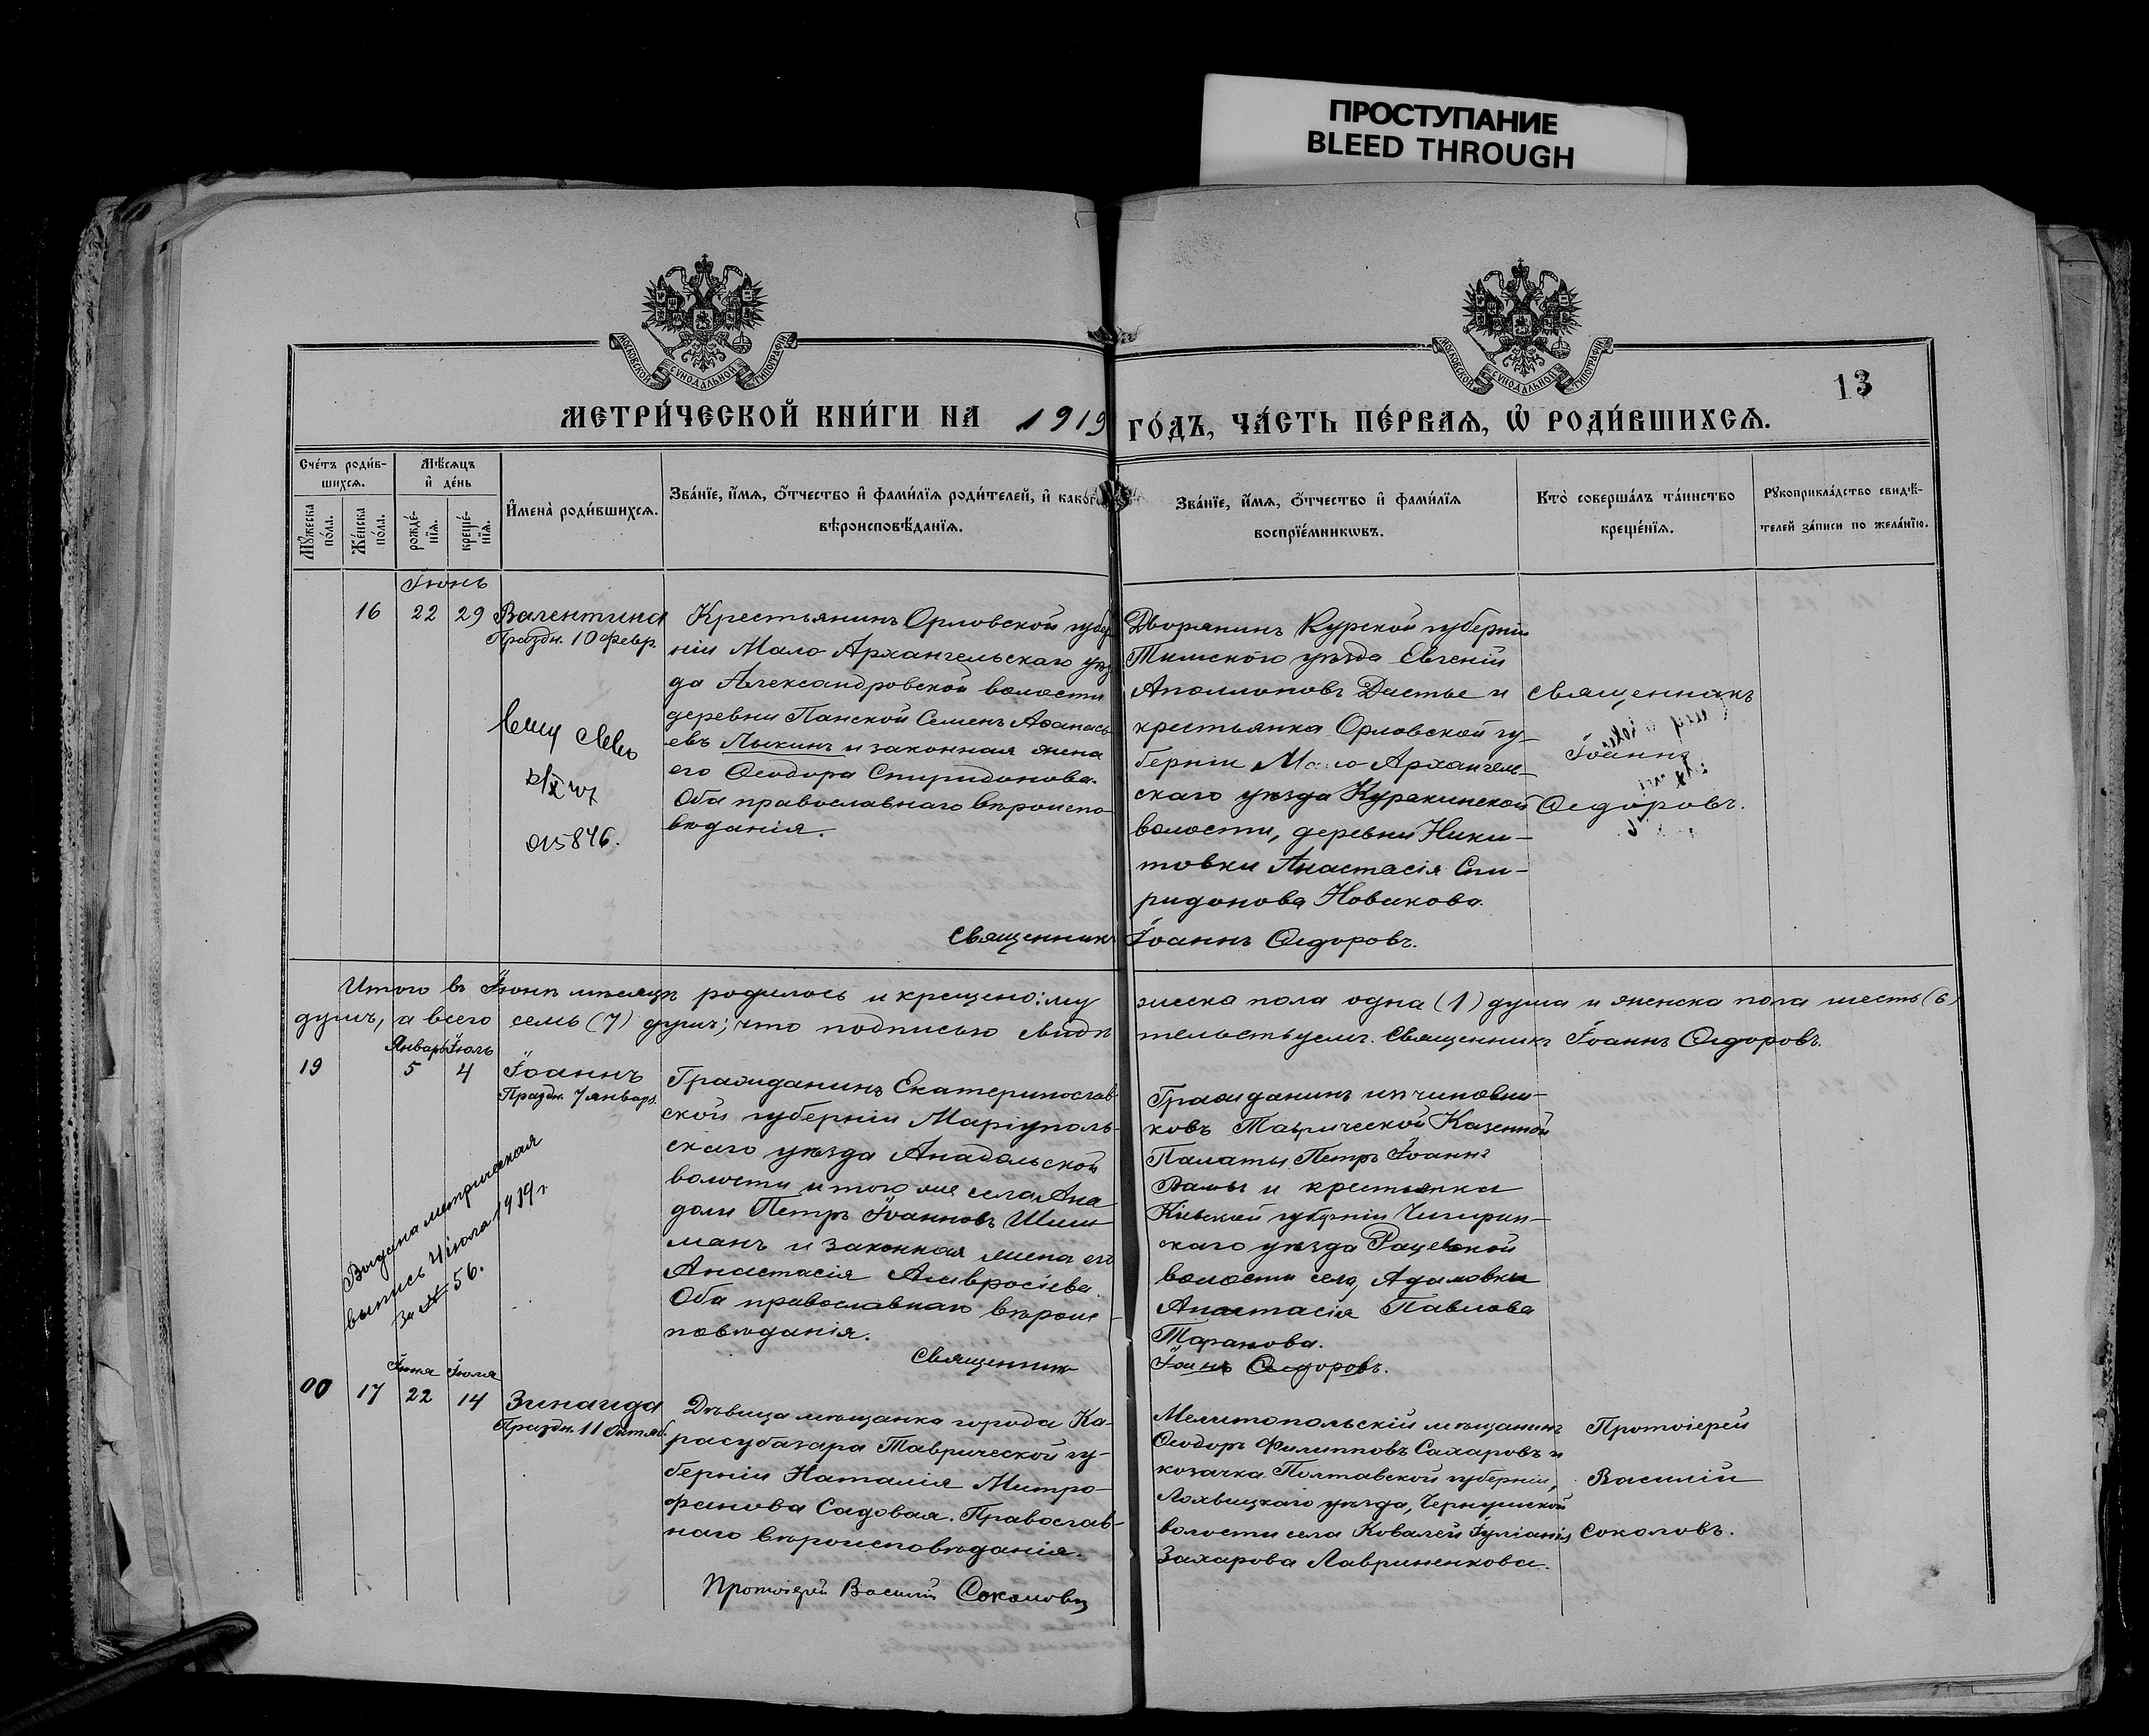 ПРОСТУПАНИЕ
BLEED THROUGH
МОСКОВСКОЙ СѴНОДАЛЬНОЙ ТИПОГРАФІИ
МОСКОВСКОЙ СѴНОДАЛЬНОЙ ТИПОГРАФІИ
13
МЕТРИ́ЧЕСКОЙ КНИ́ГИ НА 1919 ГО́ДЪ, ЧА́СТЬ ПЕ́РВАѦ, Ѡ҆ РОДИ́ВШИХСѦ.
Сче́тъ роди́в-
шихсѧ.
Мꙋ́жеска
по́ла.
Же́нска
по́ла.
Мѣ́сѧцъ
и҆ де́нь
рожде́-
нїѧ.
креще́-
нїѧ.
И҆мена̀ роди́вшихсѧ.
Зва́нїе, и҆́мѧ, ѻ҆́тчество и҆ фами́лїѧ роди́телей, и҆ како́гѡ
вѣроисповѣ́данїѧ.
Зва́нїе, и҆́мѧ, ѻ҆́тчество и҆ фами́лїѧ
воспрїе́мникѡвъ.
Кто̀ соверша́лъ та́инство
креще́нїѧ.
Рꙋкоприкла́дство свидѣ́-
телей за́писи по жела́нїю.
Іюнь
16 22 29 Валентина
Праздн. 10 февр.
015846.
Крестьянинъ Орловской губер
ніи Мало-Архангельскаго уѣз
да Александровской волости
деревни Панской Семенъ Аѳанась
евъ Лыкинъ и законная жена
его Ѳеодора Спиридонова.
Оба православнаго вѣроиспо-
вѣданія.
Дворянинъ Курской губерніи
Тимскаго уѣзда Евгеній
Аполлоновъ Дастье и
крестьянка Орловской гу-
берніи Мало Архангель-
скаго уѣзда Куракинской
волости, деревни Ники-
товки Анастасія Спи-
ридонова Новикова.
Священникъ
Іоаннъ
Ѳедоровъ.
Священникъ Іоаннъ Ѳедоровъ.
Итого въ Іюнѣ мѣсяцѣ родилось и крещено: му жеска пола одна (1) душа и женска пола шесть (6)
душъ, а всего семь (7) душъ; что подписью свидѣ тельствуемъ. Священникъ Іоаннъ Ѳедоровъ.
Январь Іюль
19 5 4 Іоаннъ
Праздн. 7 января.
Выдана метрическая
выпись 4 іюля 1919 г
за № 56.
Гражданинъ Екатеринослав-
ской губерніи Маріуполь-
скаго уѣзда Анадольской
волости и того же села Ана
доли Петръ Іоанновъ Шиш
манъ и законная жена его
Анастасія Амвросіева.
Оба православнаго вѣроис-
повѣданія.
Священникъ
Гражданинъ изъ чиновни-
ковъ Таврической Казенной
Палаты Петръ Іоаннъ
и крестьянка
Кіевской губерніи Чигирин-
скаго уѣзда Рацевской
волости села Адамовки
Анастасія Павлова
Таранова.
Іоаннъ Ѳедоровъ.
Іюня Іюля
00 17 22 14 Зинаида
Праздн. 11 Октяб.
Дѣвица мѣщанка города Ка-
расубазара Таврической гу-
берніи Наталія Митро-
фанова Садовая. Православ-
наго вѣроисповѣданія.
Протоіерей Василій Соколовъ
Мелитопольскій мѣщанинъ
Ѳеодоръ Филипповъ Сахаровъ и
козачка Полтавской губерніи,
Лохвицкаго уѣзда, Чернушской
волости села Ковалей Іуліанія
Захарова Лавриненкова.
Протоіерей
Василій
Соколовъ.